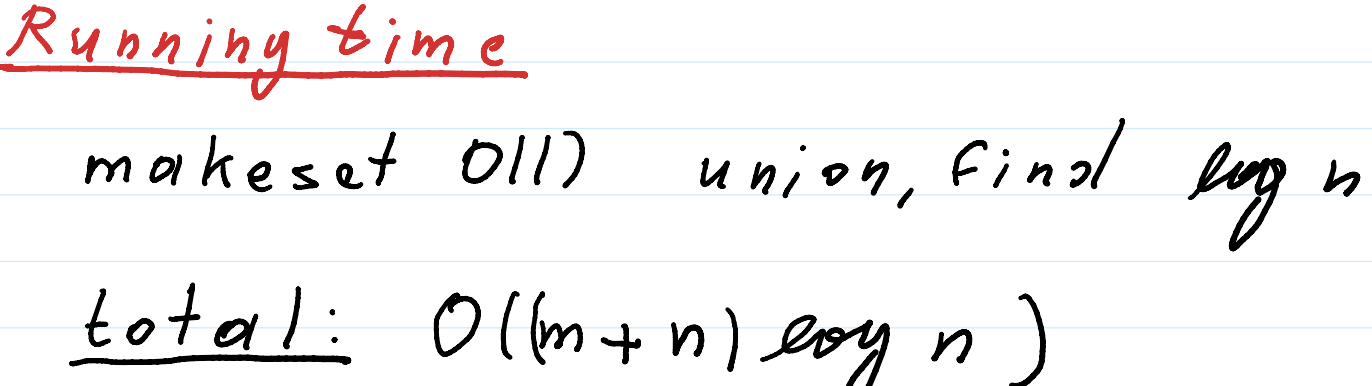 Running time
makeset O(1) union, find log n
total: O((m+n) log n)